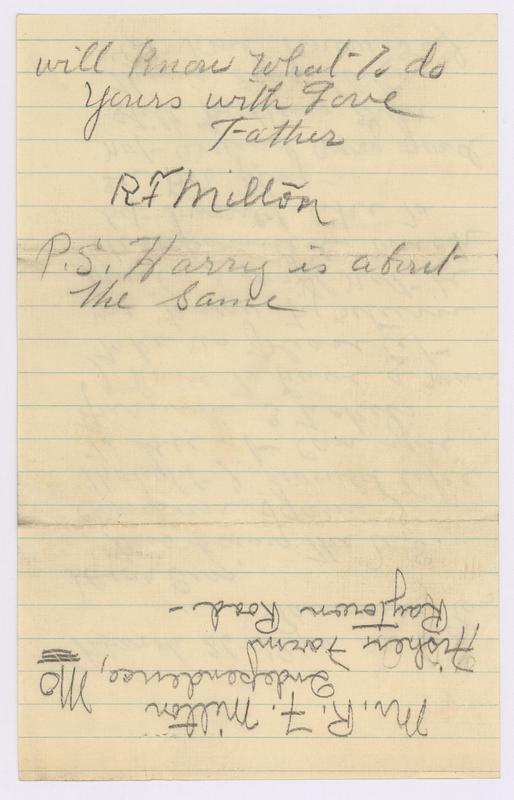 will know what to do
Yours with Love
Father
R F Milton
P.S. Harry is about
the same
Mr. R. F. Milton
Independence, Mo
Fisher Farm
Raytown Road -